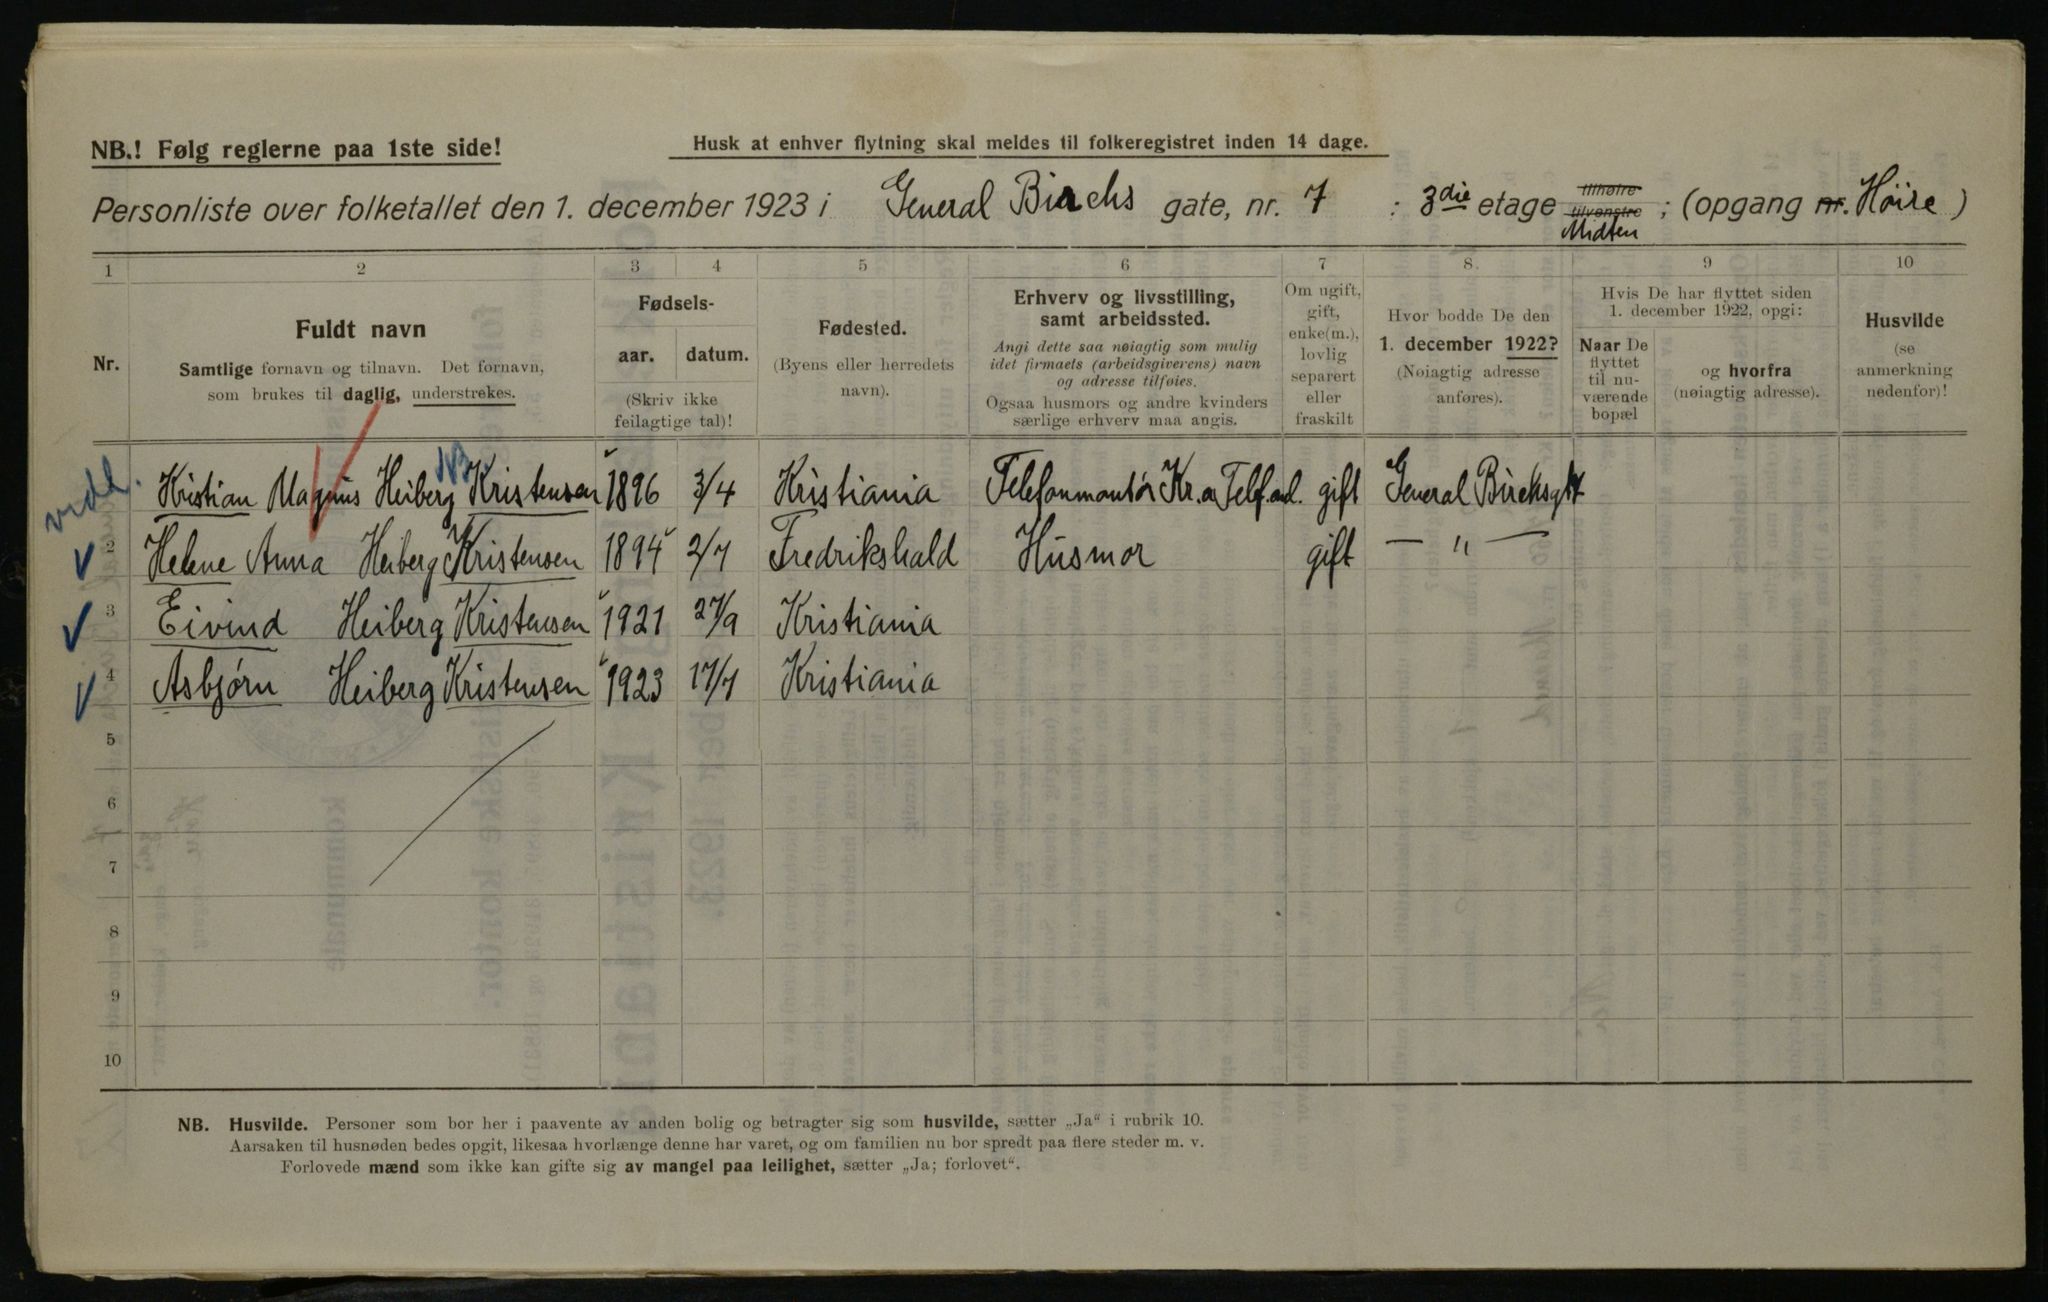 NB.! Følg reglerne paa 1ste side!
Husk at enhver flytning skal meldes til folkeregistret inden 14 dage.
Personliste over folketallet den 1. december 1923 i General Birchs gate, nr. 7 : 3die etage tilhøire tilvenstre Midten ; (opgang nr. Höire )
1 2 3 4 5 6 7 8. 9 10
Nr.
Fuldt navn
Samtlige fornavn og tilnavn. Det fornavn,
som brukes til daglig, understrekes.
Fødsels-
aar.
datum.
(Skriv ikke
feilagtige tal)!
Fødested.
(Byens eller herredets
navn).
Erhverv og livsstilling,
samt arbeidssted.
Angi dette saa nøiagtig som mulig
idet firmaets (arbeidsgiverens) navn
og adresse tilføies.
Ogsaa husmors og andre kvinders
særlige erhverv maa angis.
Om ugift,
gift,
enke(m.),
lovlig
separert
eller
fraskilt
Hvor bodde De den
1. december 1922?
(Nøiagtig adresse
anføres).
Hvis De har flyttet siden
1. december 1922, opgi:
Naar De
flyttet
til nu-
værende
bopæl
og hvorfra
(nøiagtig adresse).
Husvilde
(se
anmerkning
nedenfor)!
Kristian Magnus Heiberg Kristensen 1896 3/4 Kristiania Telefonmontör gift General Birchsgt 7
2 Helene Anna Heiberg Kristensen 1894 2/7 Fredrikshald Husmor gift — " —
3 Eivind Heiberg Kristensen 1921 27/9 Kristiania
4 Asbjørn Heiberg Kristensen 1923 17/7 Kristiania
5
6
7
8
9
10
NB. Husvilde. Personer som bor her i paavente av anden bolig og betragter sig som husvilde, sætter „Ja“ i rubrik 10.
Aarsaken til husnøden bedes opgit, likesaa hvorlænge denne har varet, og om familien nu bor spredt paa flere steder m. v.
Forlovede mænd som ikke kan gifte sig av mangel paa leilighet, sætter „Ja; forlovet“.